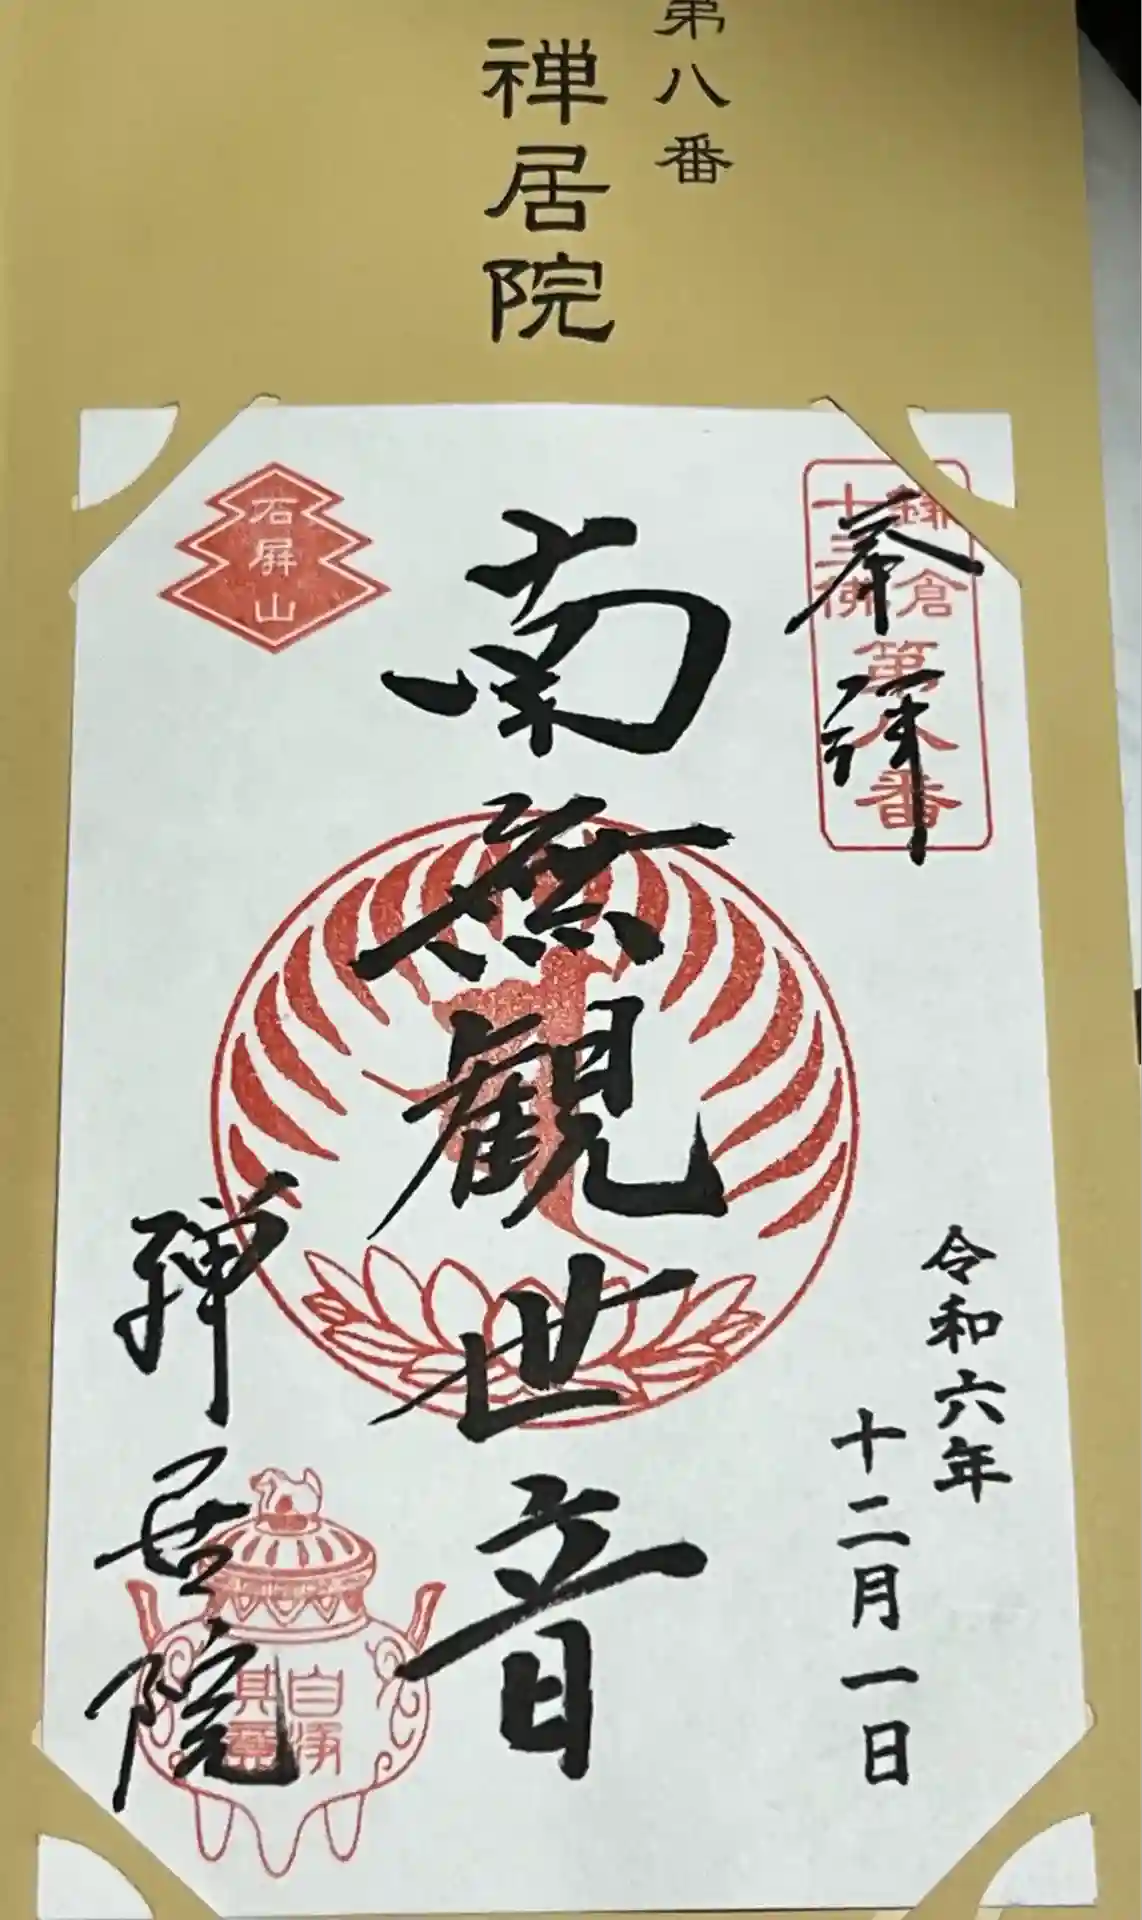 第八番
禅居院
鎌倉
十三佛
第八番
奉拝
石屏山
南無観世音
令和六年
十二月一日
禅居院
自浄
其意